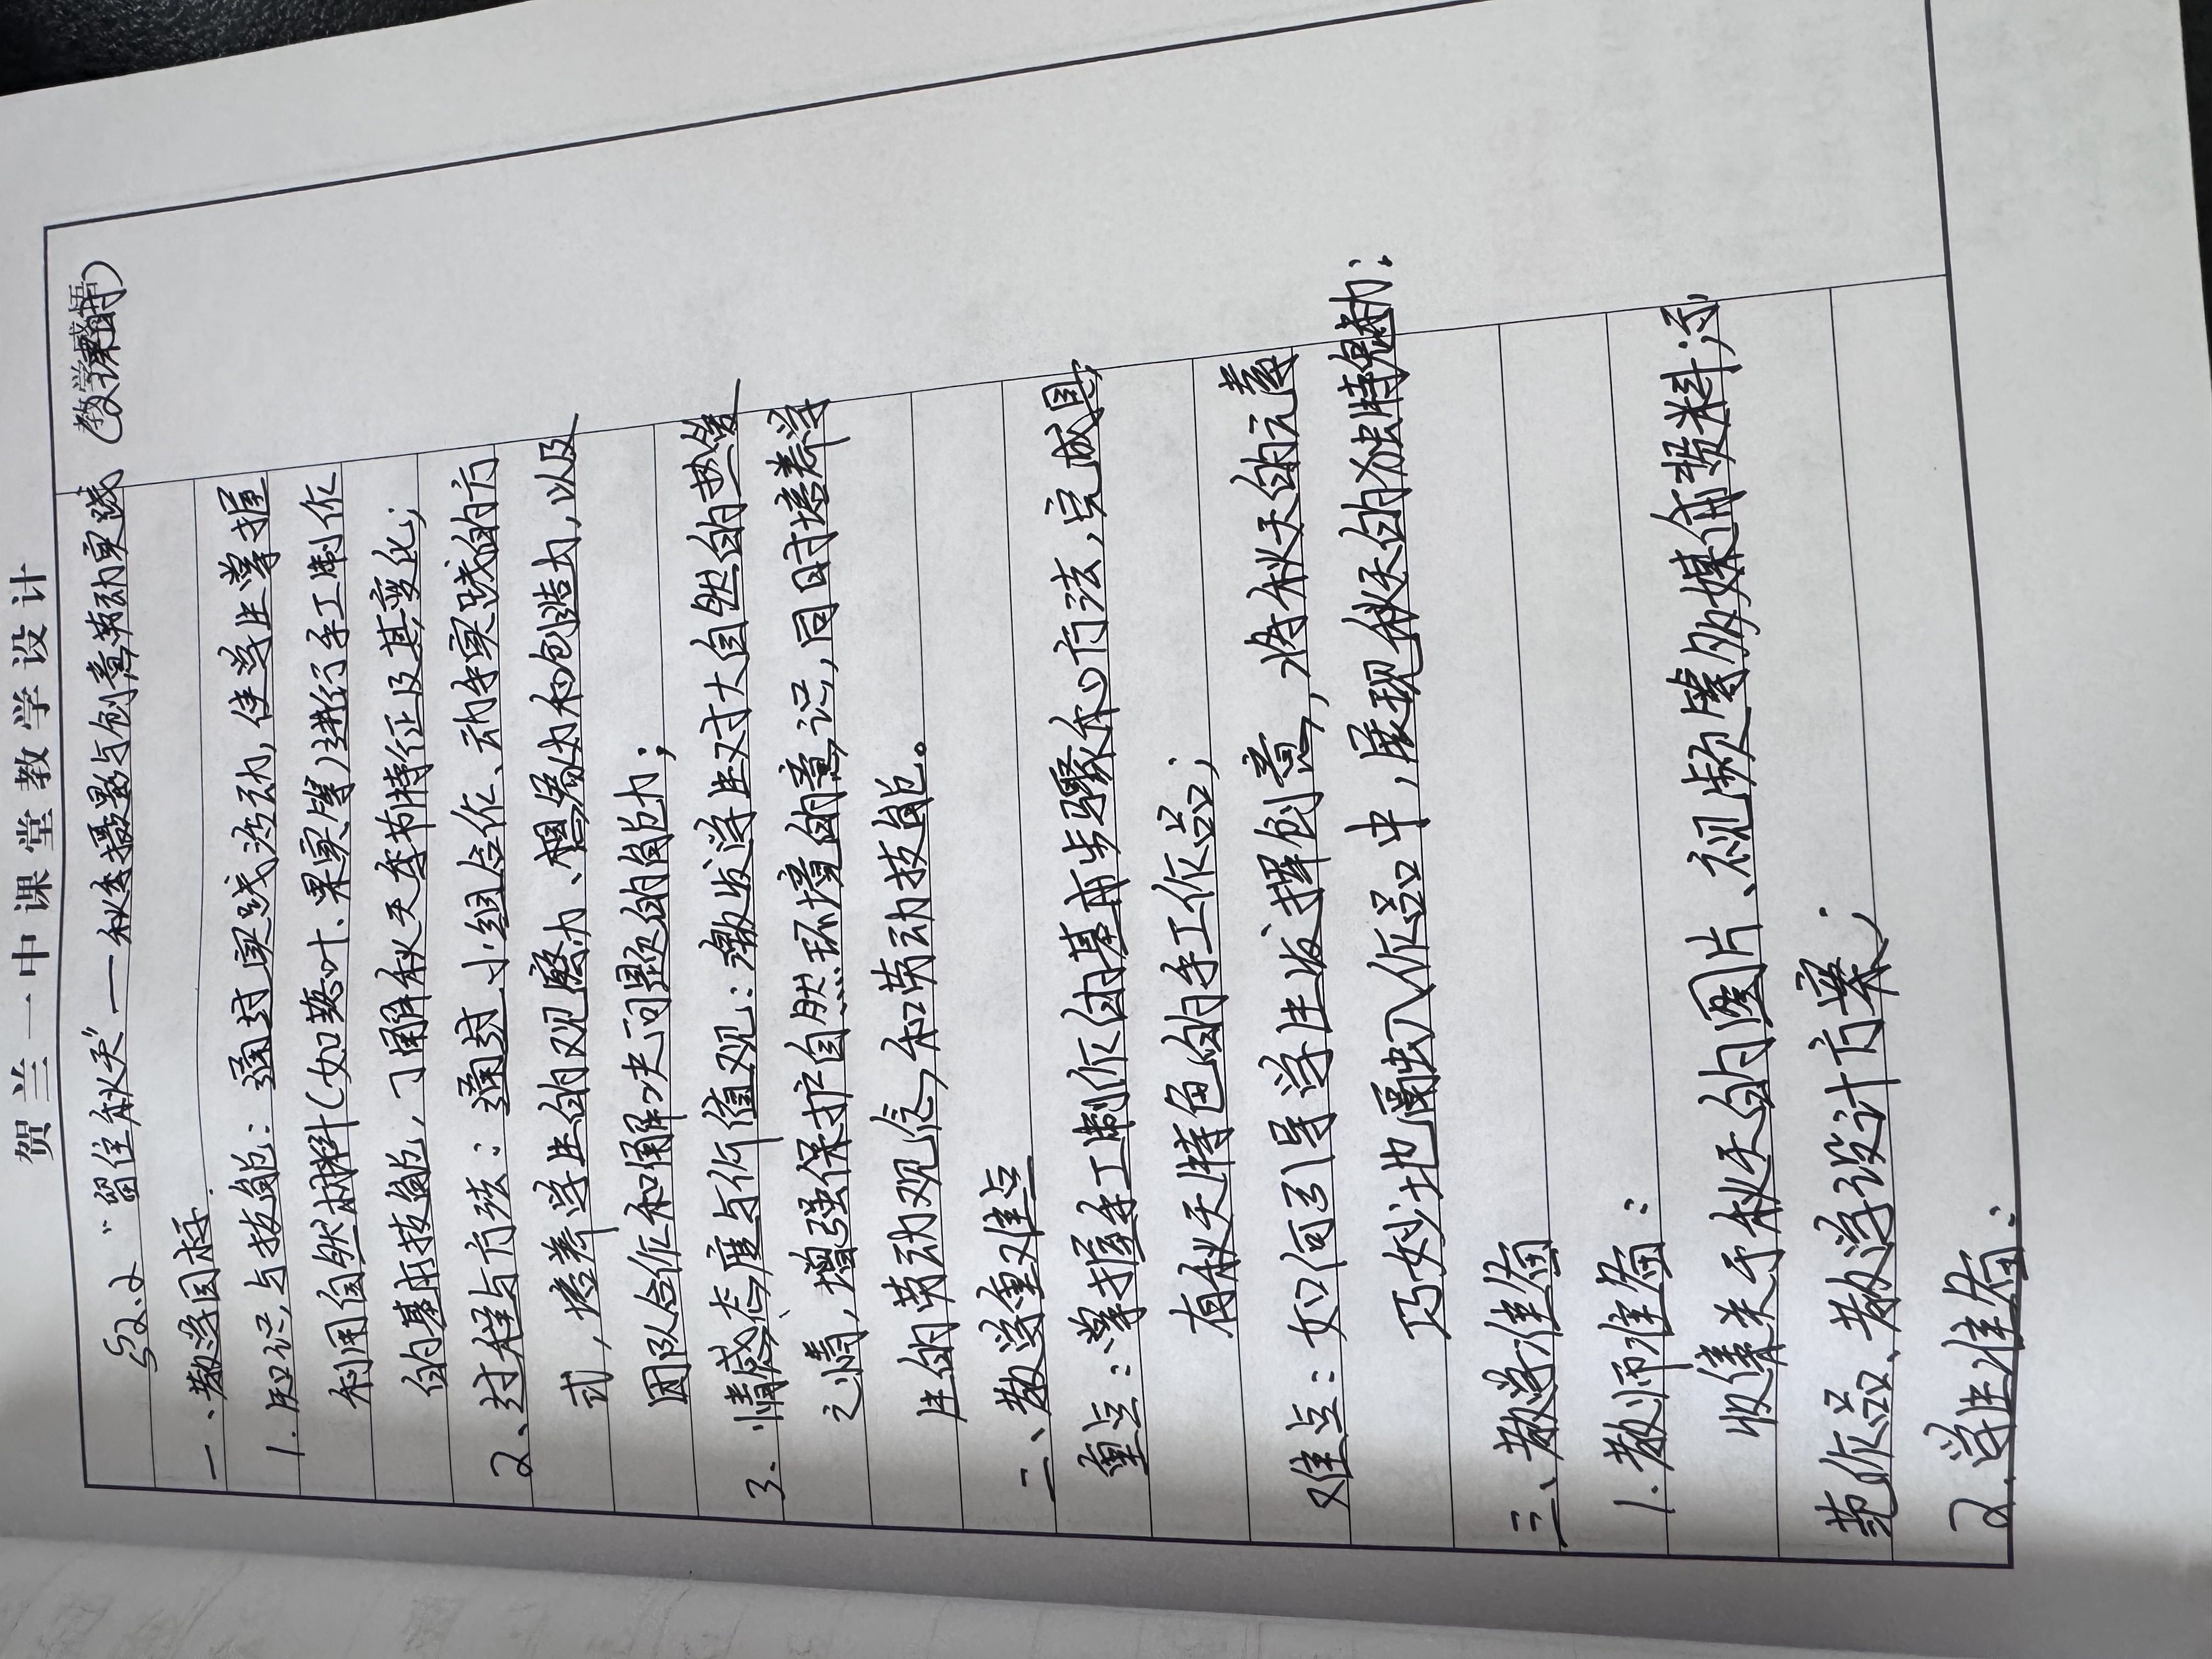 贺兰一中课堂教学设计
§2.2 “留住秋天”—秋季摄影与创意劳动实践
一、教学目标.
1.知识与技能：通过实践活动,使学生掌握
利用自然材料(如落叶、果实等)进行手工制作
的基本技能,了解秋天季节特征及其变化;
2、过程与方法：通过小组合作、动手实践的方
式,培养学生的观察力、想象力和创造力,以及
团队合作和解决问题的能力;
3、情感态度与价值观：激发学生对大自然的热爱
之情,增强保护自然环境的意识,同时培养学
生的劳动观念,和劳动技能。
二、教学重难点
重点：掌握手工制作的基本步骤和方法,完成具
有秋天特色的手工作品;
难点：如何引导学生发挥创意,将秋天的元素
巧妙地融入作品中,展现秋天的独特魅力;
三、教学准备
1.教师准备：
收集关于秋天的图片、视频等多媒体资料;示
范作品、教学设计方案;
2、学生准备：